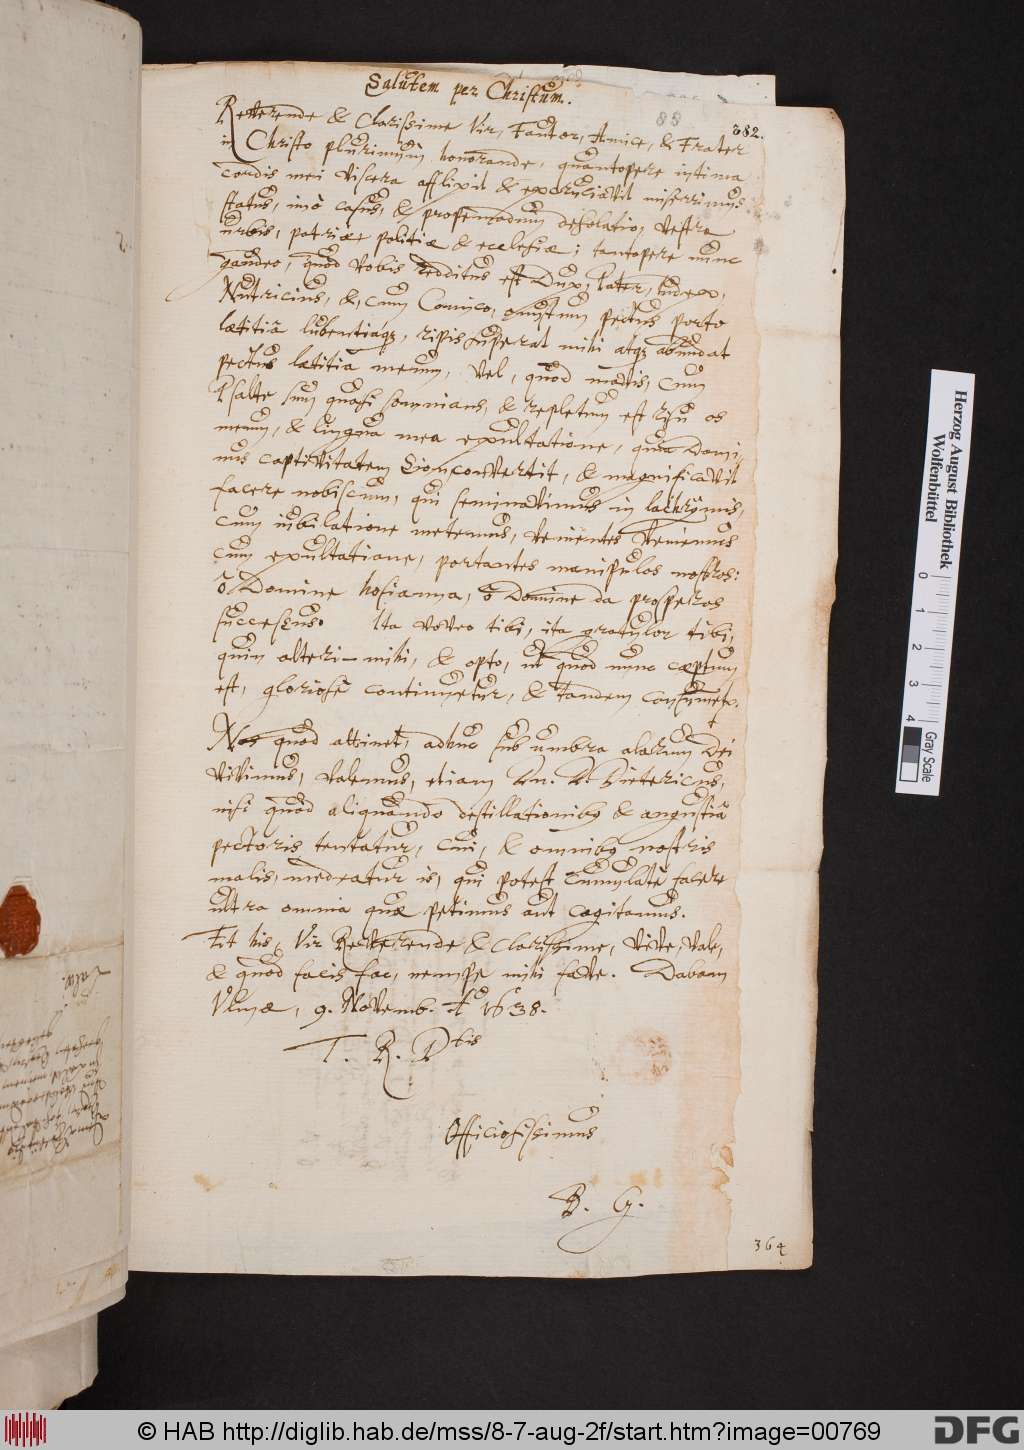 Salutem per Christum.
88
382.
Reverende & Clarissime Vir, Fautor, Amice, & Frater
in Christo plurimùm honorande, quantopere intima
cordis mei viscera afflixit & excruciavit miserrimus
status, imò casus, & propemodum desolatio, vestræ
urbis, patriæ politiæ & ecclesiæ; tantopere nunc
gaudeo, quòd vobis redditus est Dux, Pater, Iudex,
Nutricius, &, cum Comico, onustum pectus porto
lætitiâ lubentiaq;, ripis superat mihi atq; abundat
pectus lætitiâ meum, Vel, quod mavis, cum
Psalte sum quasi somnians, & repletum est risu os
meum, & lingua mea exultatione, quia Domi,
nus captivitatem Sion convertit, & magnificavit
facere nobiscum, qui seminavimus in lachrymis,
cum iubilatione metemus, venientes veniemus
cum exultatione, portantes manipulos nostros:
ô Domine hosianna, ô Domine da prosperos
successus. Ita voveo tibi, ita gratulor tibi,
quin alteri mihi, & opto, ut quod nunc cæptum
est, gloriosè continuetur, & tandem consummetur.
Nos quod attinet, adhuc sub umbra alarum Dei
vivimus, valemus, etiam Dn. D. Dietericus,
nisi quòd aliquando destillationib9 & angustiâ
pectoris tentatur, cui, & omnib9 nostris
malis, medeatur is, qui potest cumulatè facere
ultra omnia quæ petimus aut cogitamus.
Tu his, Vir Reverende & Clarissime, vive, vale,
& quod facis fac, nempe mihi fave. Dabam
Ulmæ, 9. Novemb. Aº 1638.
T. R. Dtis
Officiosissimus
B. G.
364
Herzog August Bibliothek
Wolfenbüttel
0 1 2 3 4
Gray Scale
© HAB http://diglib.hab.de/mss/8-7-aug-2f/start.htm?image=00769
DFG